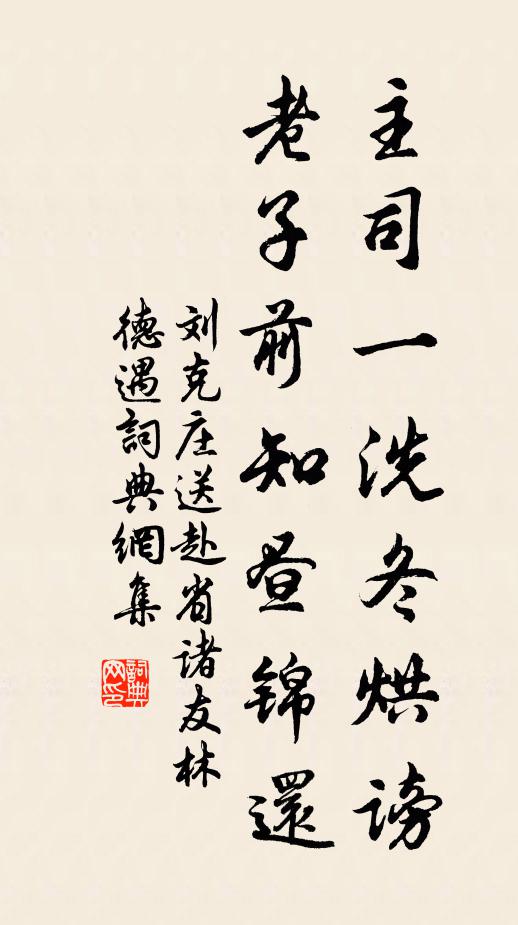 主司一洗冬烘謗
老子前知昼錦還
刘克庄送赴省诸友林
德遇詞典網集
詞典网印